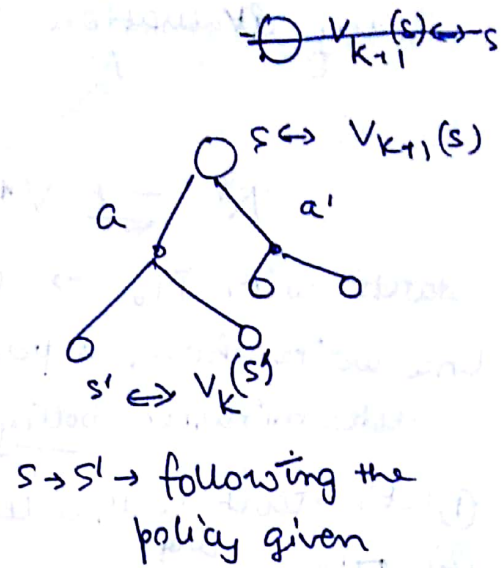 V_{K+1}(s) ↔ s
s ↔ V_{K+1}(s)
a a'
s' ↔ V_K(s')
s → s' → following the
policy given